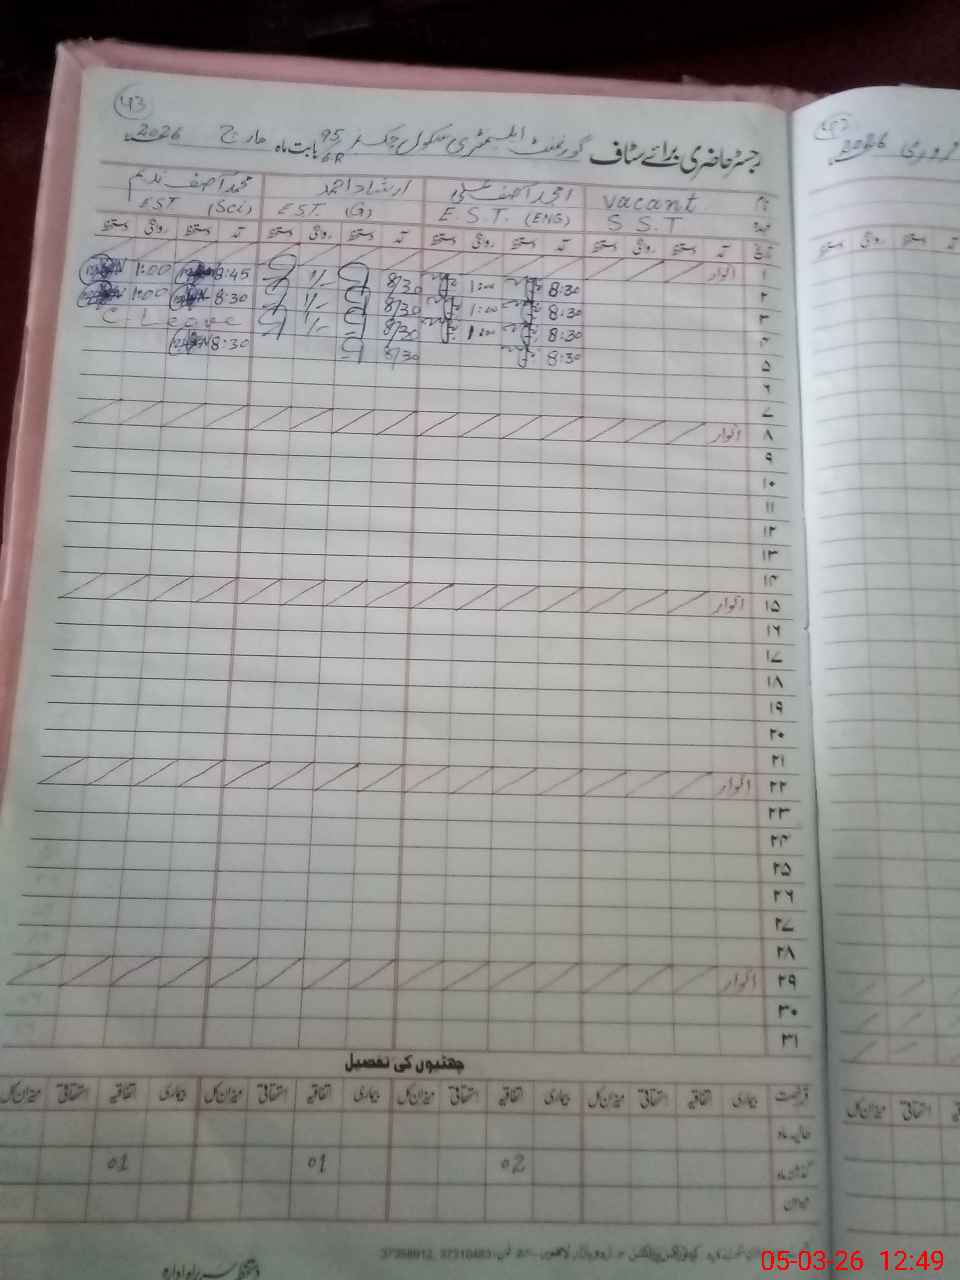 43
رجسٹر حاضری برائے سٹاف گورنمنٹ ایلیمنٹری سکول چک نمبر 95 6-R بابت ماہ مارچ 2026
نام vacant امجد آصف علی ارشاد احمد محمد آصف ندیم
عہدہ S.S.T E.S.T. (ENG) E.S.T. (G) E.S.T (Sci)
تاریخ آمد دستخط روانگی دستخط آمد دستخط روانگی دستخط آمد دستخط روانگی دستخط آمد دستخط روانگی دستخط
۱ اتوار
۲ 8:30 1:00 8/30 1/- 8:45 1:00
۳ 8:30 1:00 8/30 1/- 8:30 1:00
۴ 8:30 1:00 8/30 1/- C-Leave
۵ 8:30 8/30 8:30
۶
۷
۸ اتوار
۹
۱۰
۱۱
۱۲
۱۳
۱۴
۱۵ اتوار
۱۶
۱۷
۱۸
۱۹
۲۰
۲۱
۲۲ اتوار
۲۳
۲۴
۲۵
۲۶
۲۷
۲۸
۲۹ اتوار
۳۰
۳۱
چھٹیوں کی تفصیل
رخصت بیماری اتفاقیہ استحقاقی میزان کل بیماری اتفاقیہ استحقاقی میزان کل بیماری اتفاقیہ استحقاقی میزان کل بیماری اتفاقیہ استحقاقی میزان کل
حالیہ ماہ
گذشتہ ماہ 02 01 01
میزان
37310483
دستخط سربراہ ادارہ
فروری 2026
05-03-26 12:49